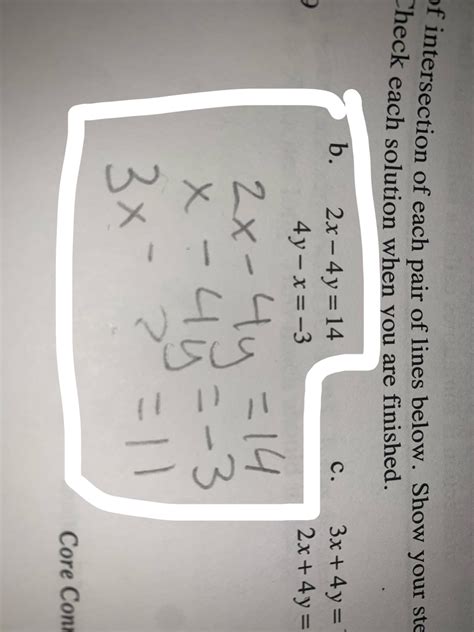 of intersection of each pair of lines below. Show your ste
Check each solution when you are finished.
b. 2x – 4y = 14 c. 3x + 4y =
4y – x = –3 2x + 4y =
2x - 4y = 14
x - 4y = -3
3x - ? = 11
Core Conn